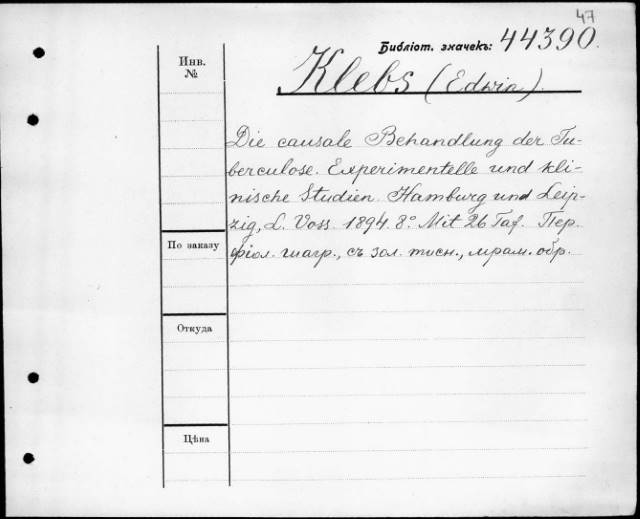 47
Библіот. значекъ: 44390.
Инв.
№
Klebs (Edwin).
Die causale Behandlung der Tu-
berculose. Experimentelle und kli-
nische Studien. Hamburg und Leip-
zig, L. Voss. 1894. 8°. Mit 26 Taf. Пер.
фіол. шагр., съ зол. тисн., мрам. обр.
По заказу
Откуда
Цѣна